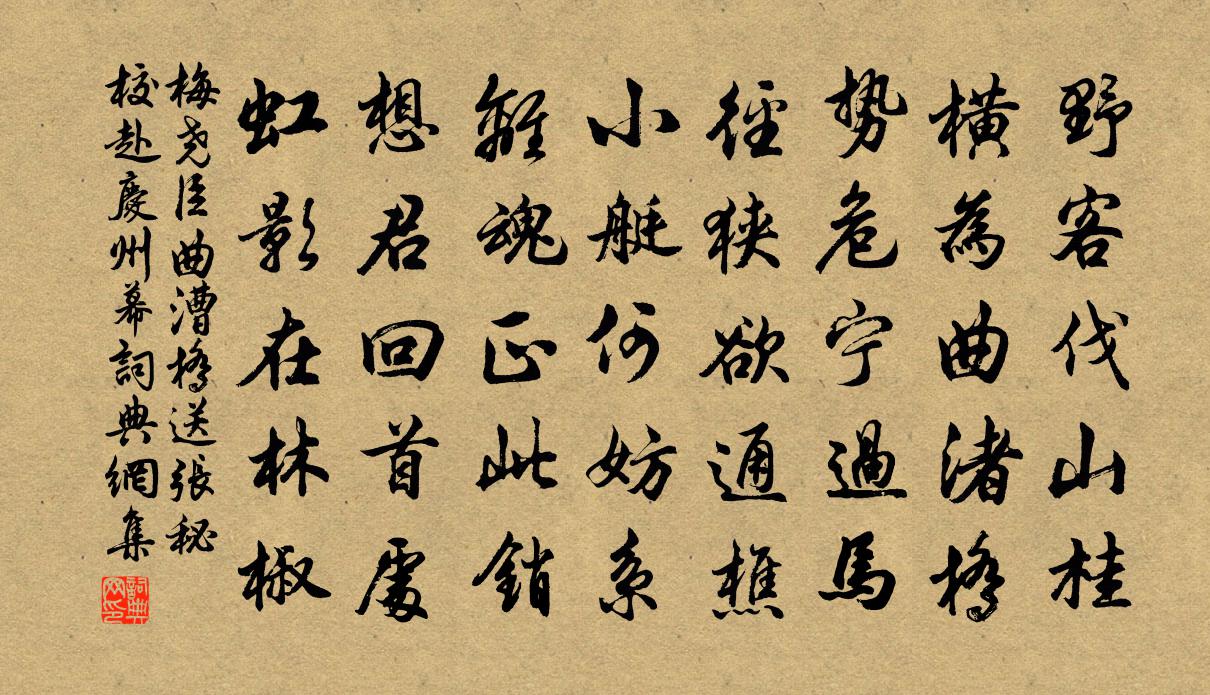 野客伐山桂
橫為曲渚橋
勢危宁過馬
徑狹欲通樵
小艇何妨系
離魂正此銷
想君回首處
虹影在林椒
梅尧臣曲漕橋送張秘
校赴慶州幕詞典網集
詞典网印